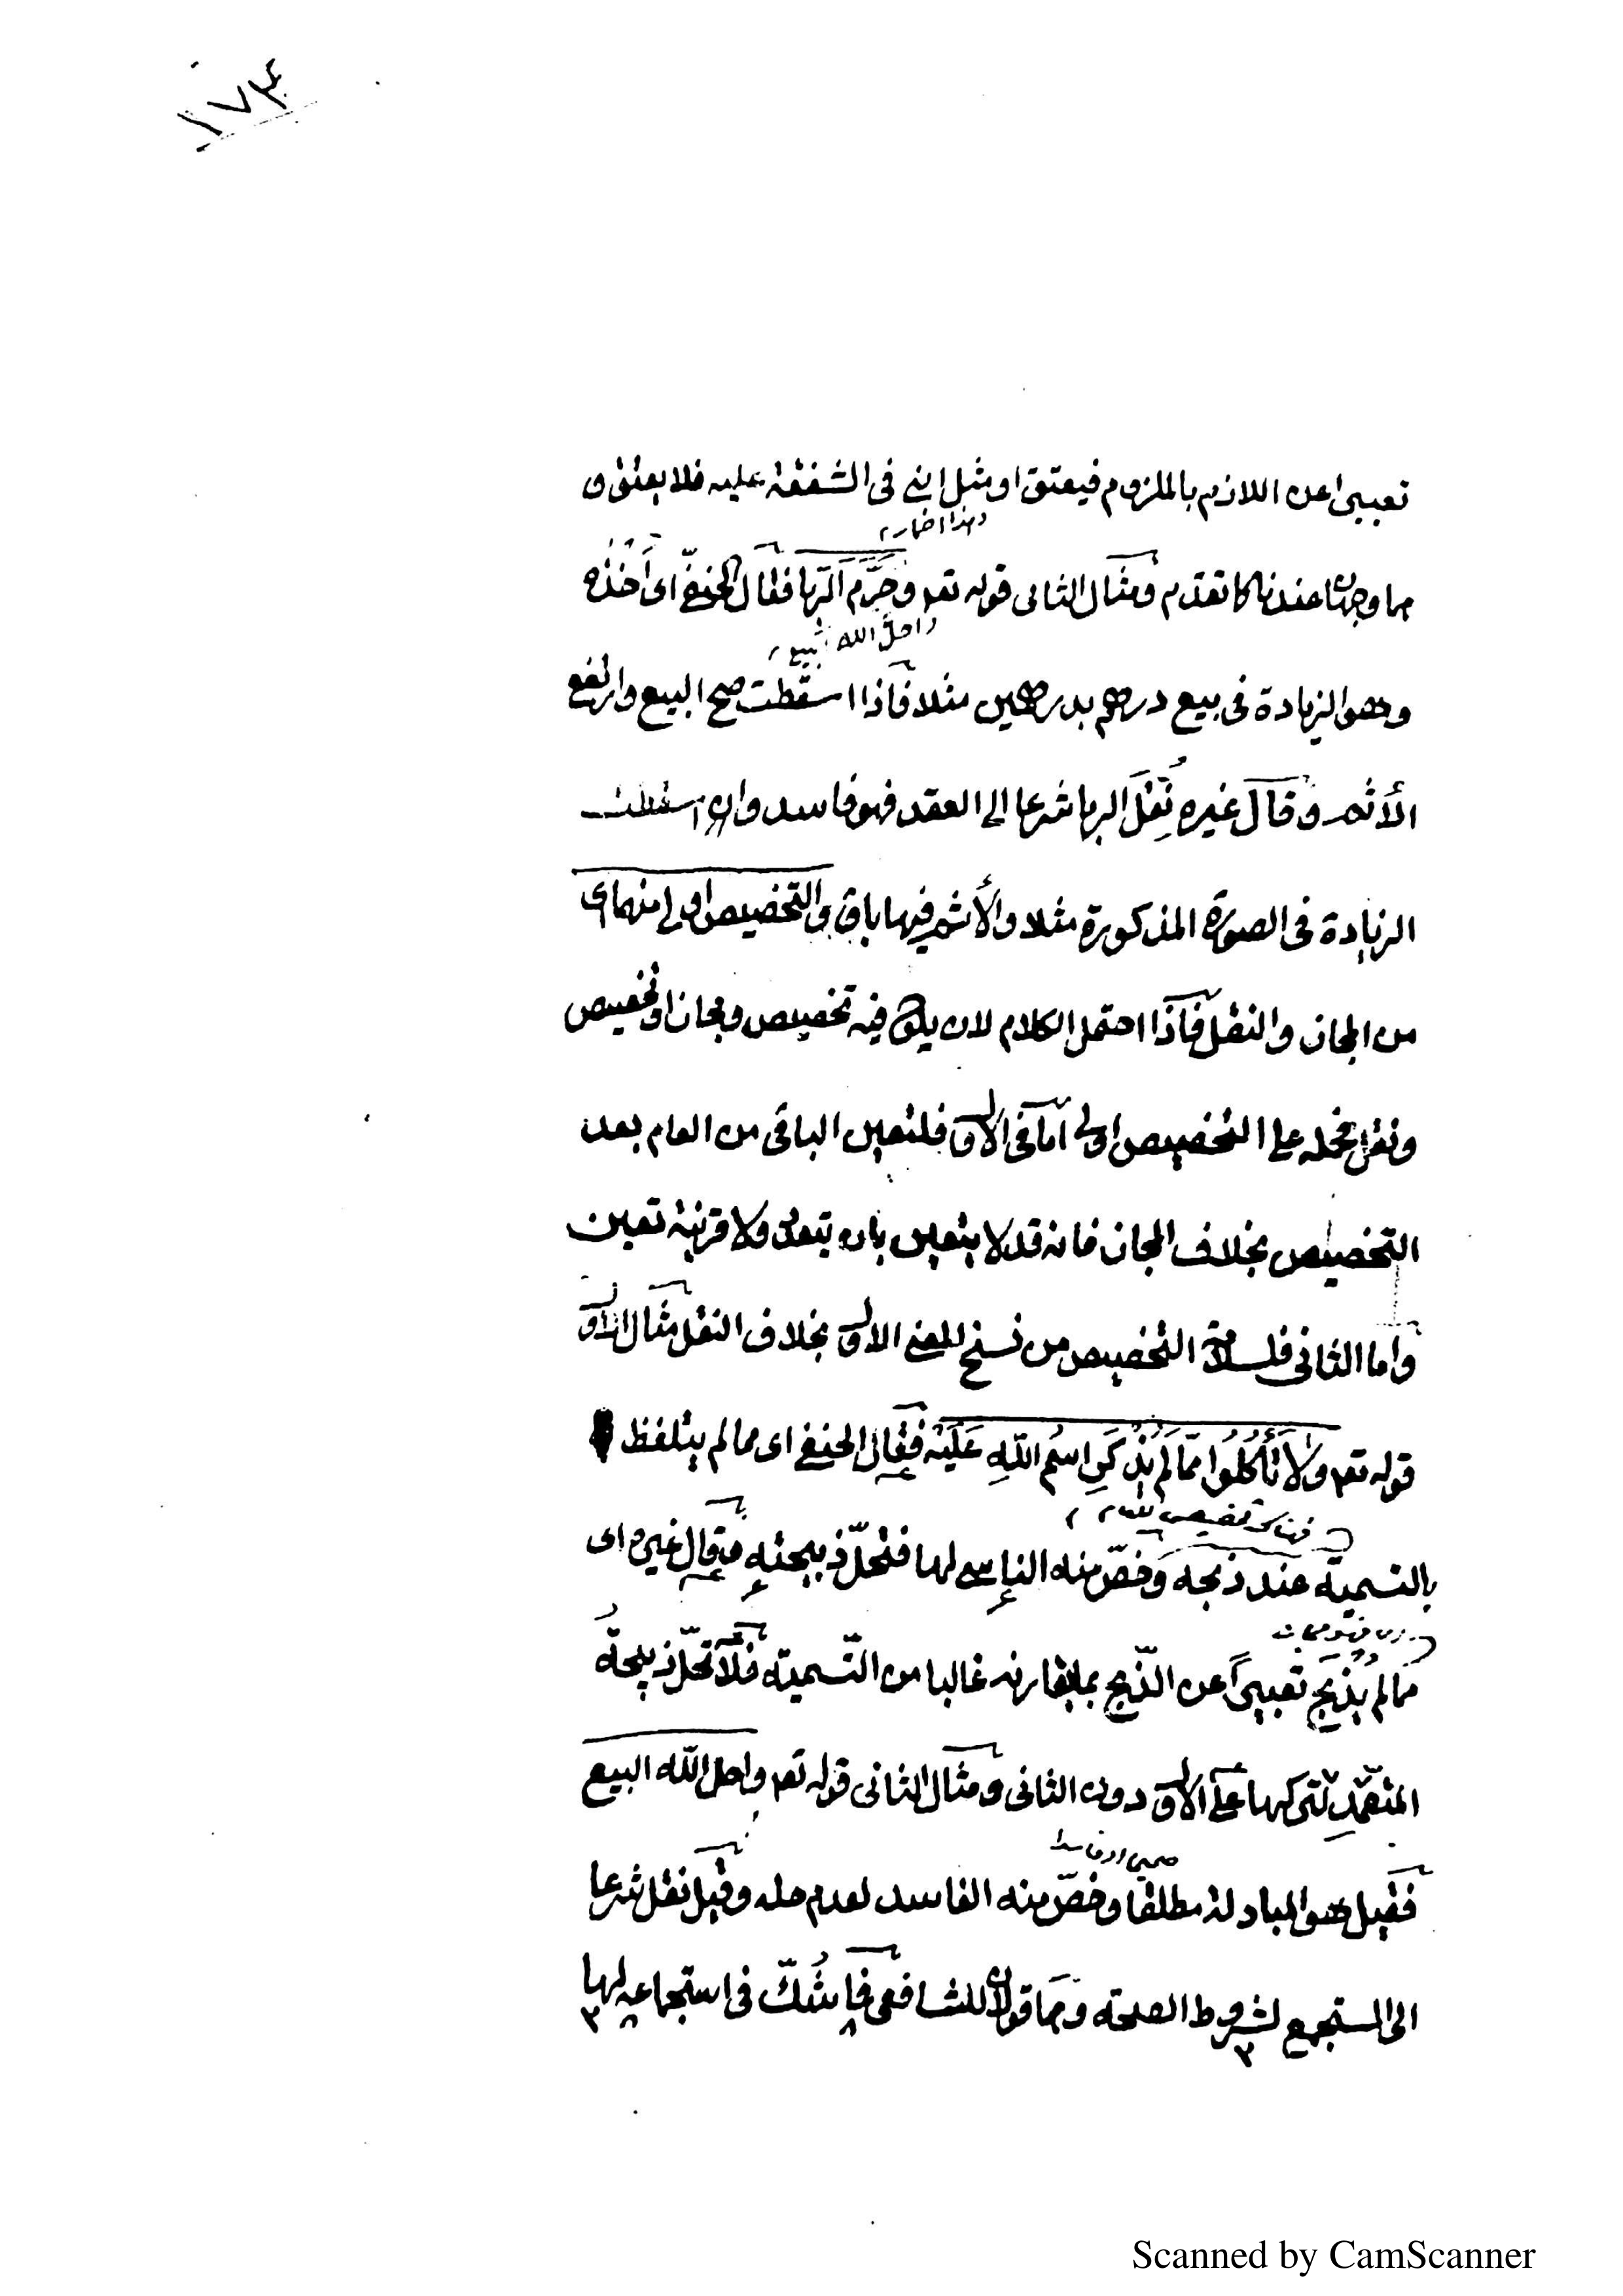 ١٧٣
تعبيرا عن اللازم بالملزوم فيعتق او مثل ابني في الشفقة عليه فلا يعتق و
وهذا اضمار
هما وجهان عندنا كما تقدم ومثال الثاني قوله تعـ وَحَرَّمَ الرِّبا فقال الحنفيّ اى أَخْذَه
واحلّ الله البيع
وهو الزيادة في بيع درهم بدرهمين مثلا فاذا اسقطت صح البيع وارتفع
الأثم وقال غيره نُقِلَ الربا شرعا الى العقد فهو فاسد وان اسقطت
الزيادة في الصورة المذكورة مثلا والأثم فيها باق والتخصيص اولى منهما اى
من المجاز والنقل فاذا احتمل الكلام لان يكون فيه تخصيص ومجاز او تخصيص
ونقل فحمله على التخصيص اولى اما في الاول فلتعين الباقى من العام بعد
التخصيص بخلاف المجاز فانه قد لا يتعين بان يتعدد ولا قرينة تعين
واما الثاني فلسلامة التخصيص من نسخ المعنى الاول بخلاف النقل مثال الاول
قوله تعـ وَلاَ تَأْكُلُوا مِمّا لَمْ يُذْكَرِ اسْمُ اللهِ عَلَيْهِ فقال الحنفي اى مما لم يتلفظ
بالتسمية عند ذبحه وخصّ منه الناسي لها فتحلّ ذبيحته وقال غيره اى
مما لم يُذبَح تعبيراً عن الذّبح بما يقارنه غالبا من التّسمية فلا تحلّ ذبيحةُ
المتعمّدِ لتركها على الاول دون الثاني ومثال الثاني قوله تعـ واحل الله البيع
صحيحا او فاسدا
فقيل هو المبادلة مطلقا وخصّ منه الفاسد لعدم حله وقيل نقل شرعا
الى المستجمع لشروط الصحة وهما قولان للشافعي فما شُكّ في استجماعه لها
Scanned by CamScanner